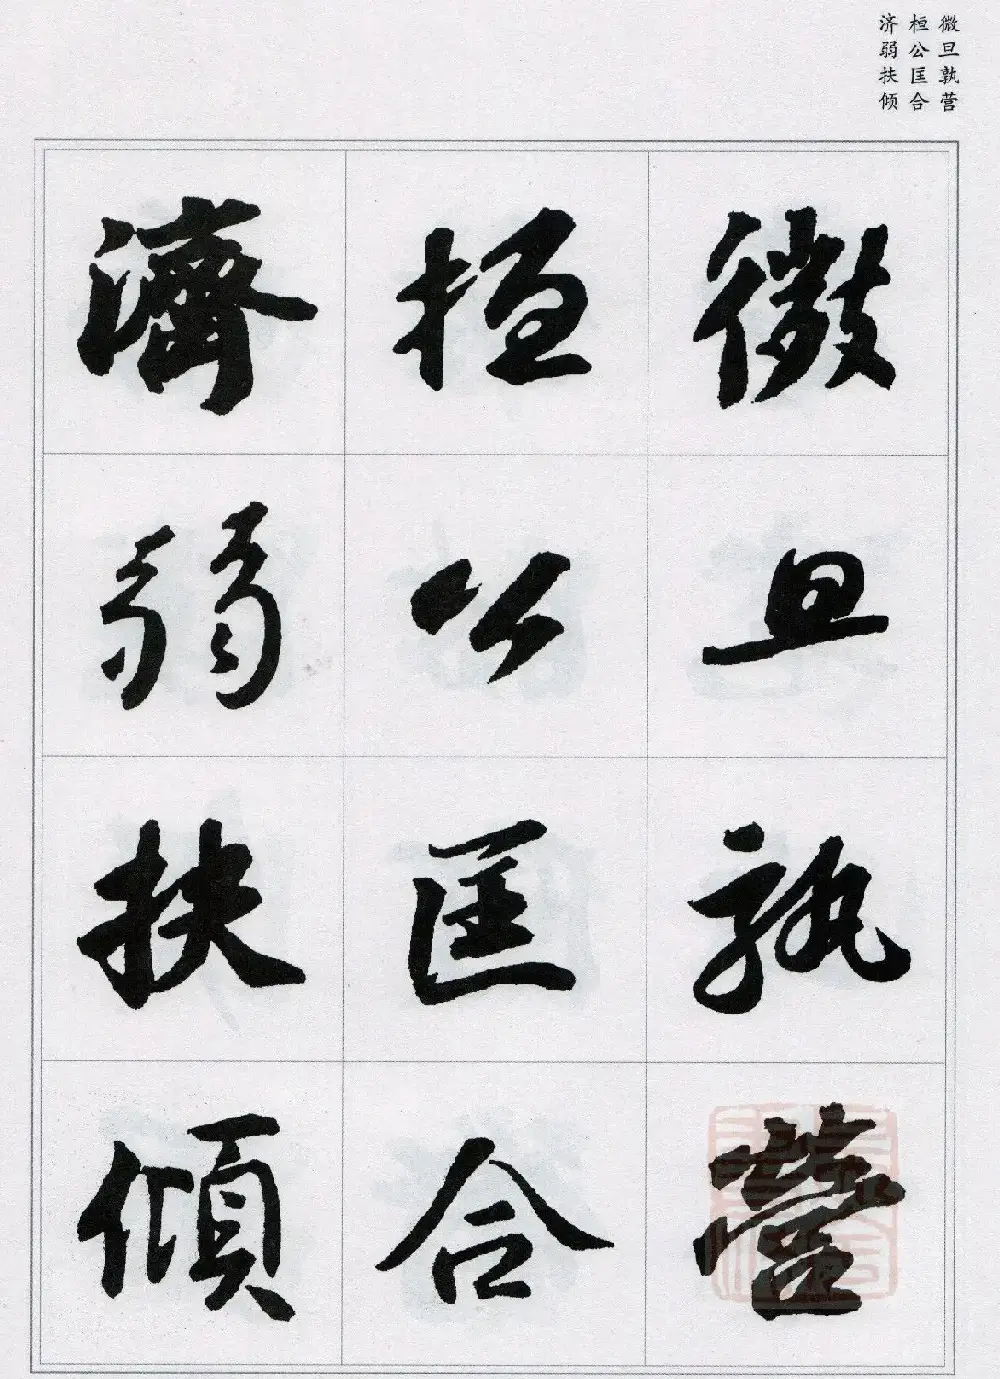 微旦孰营
桓公匡合
济弱扶倾
微旦孰營
桓公匡合
濟弱扶傾